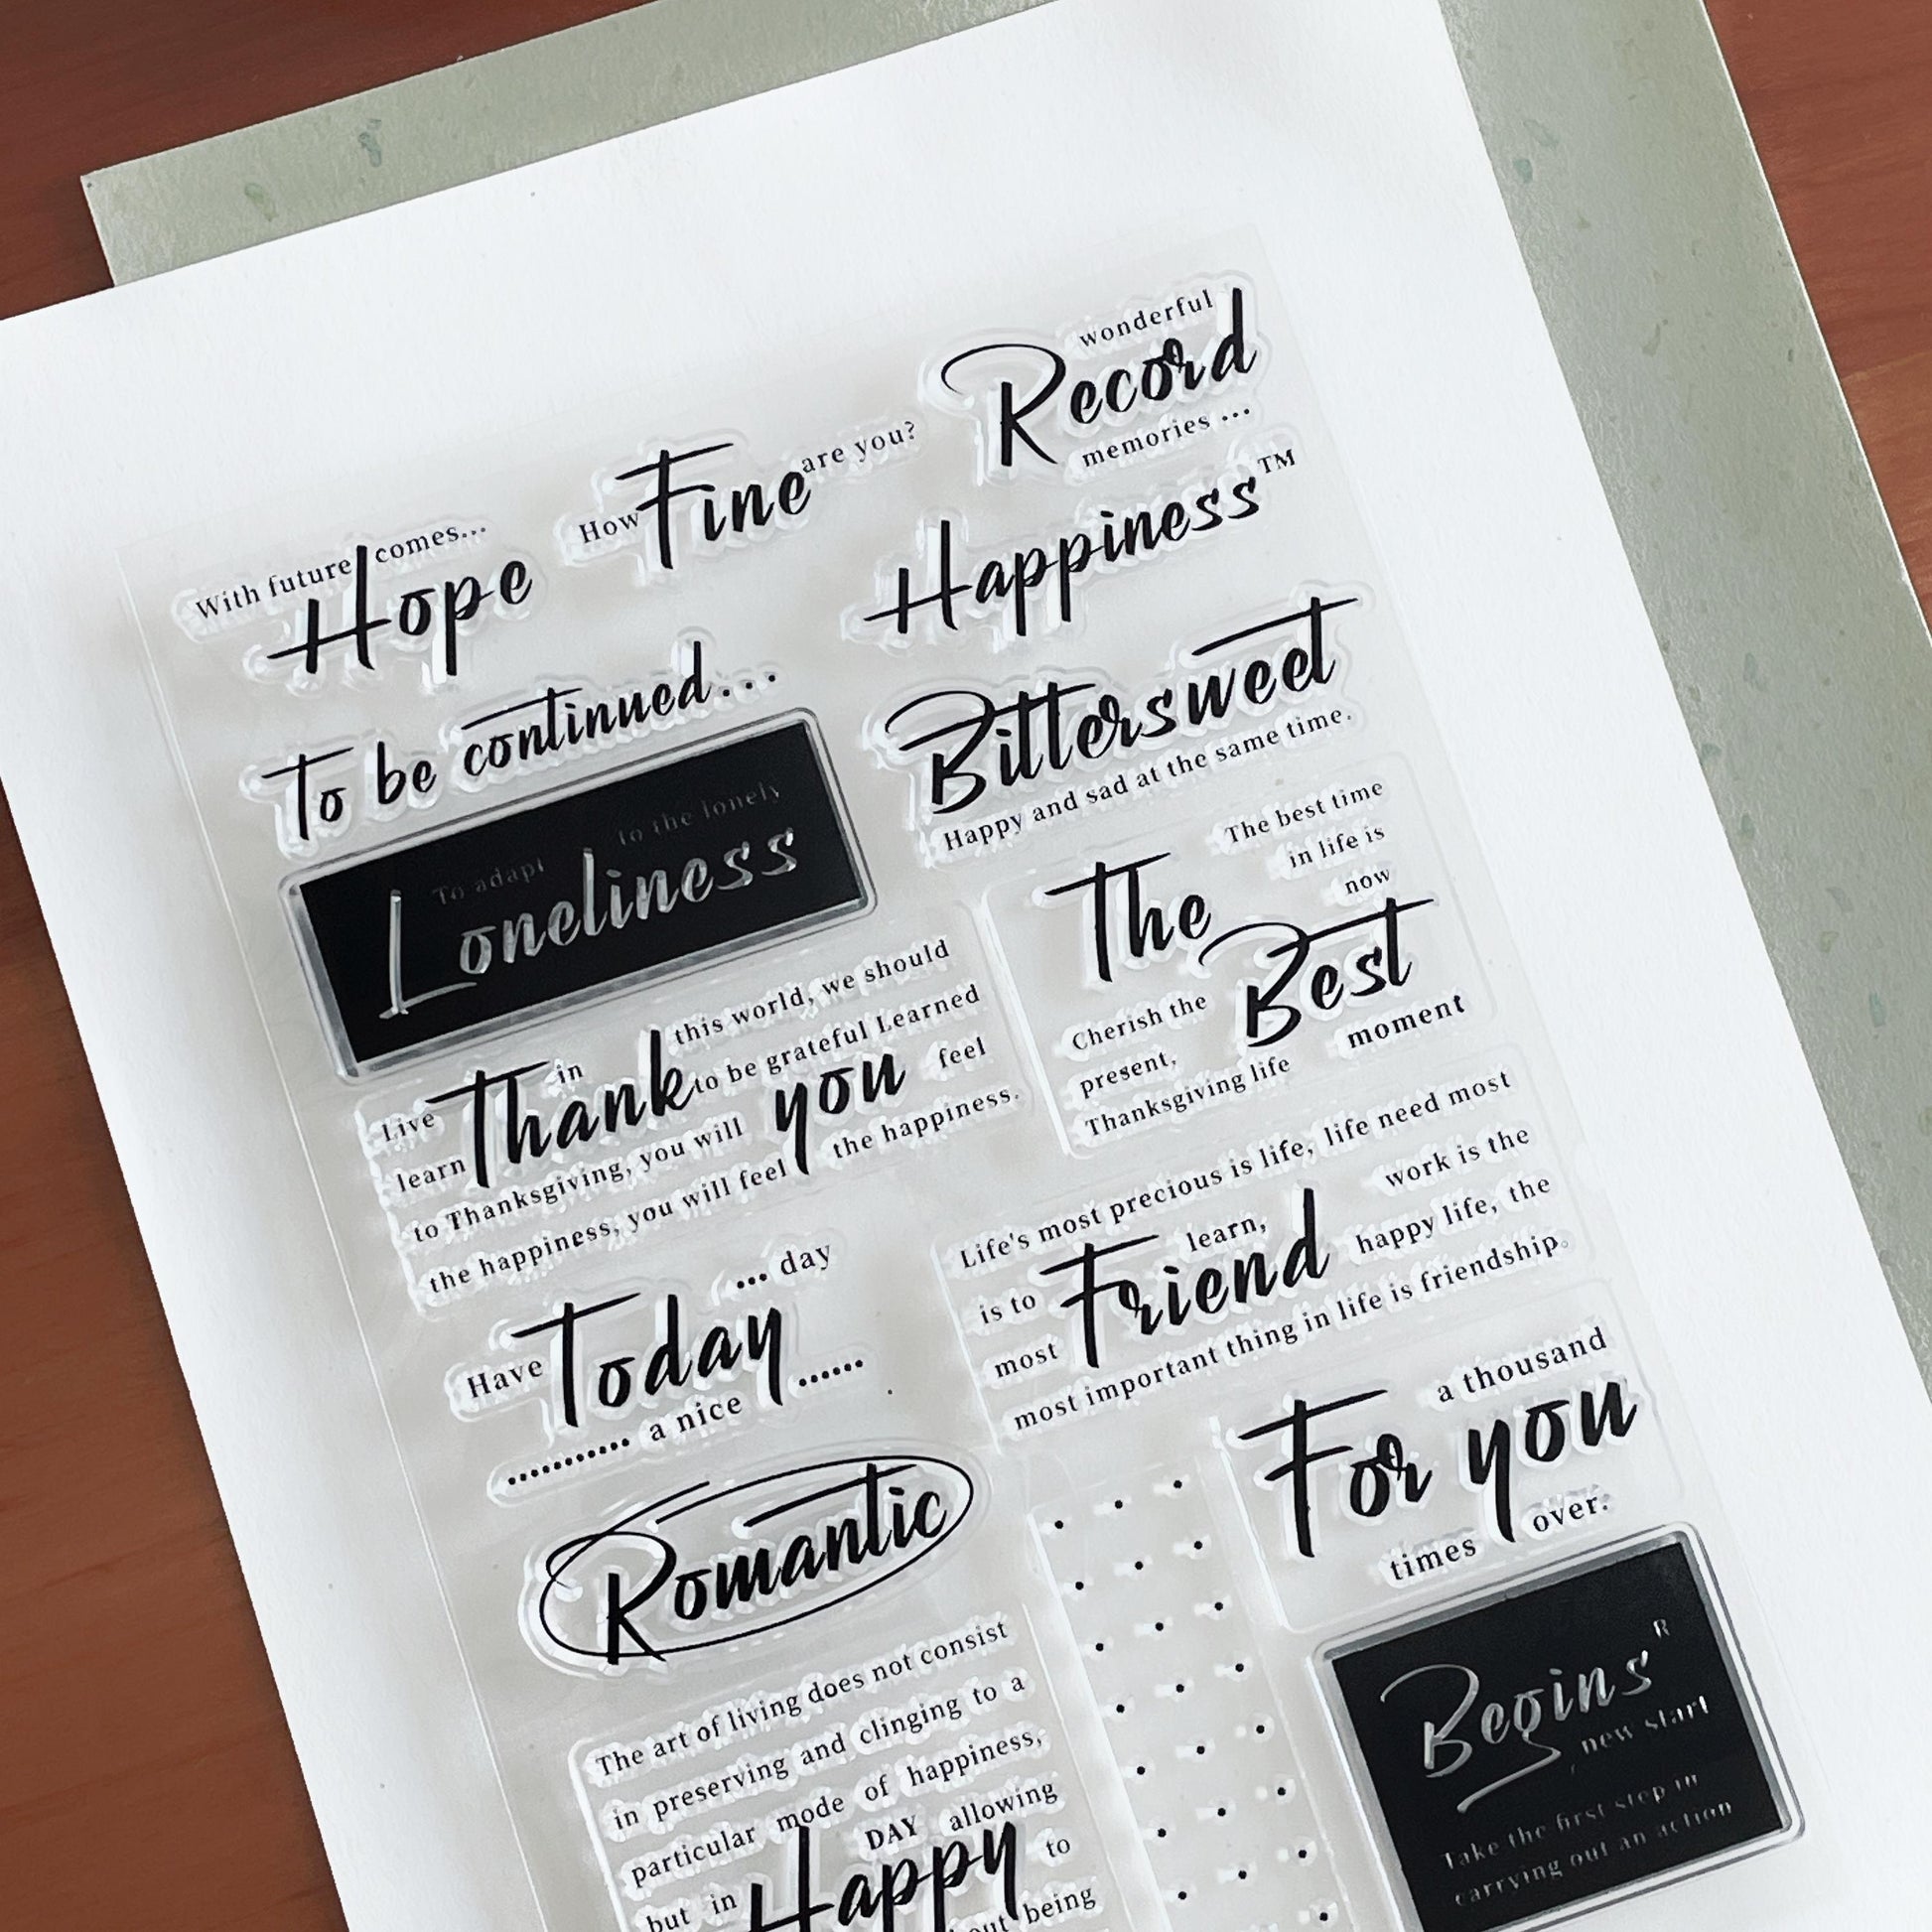 wonderful
Record
memories ...
How Fine are you?
With future comes...
Hope
Happiness™
To be continued...
Bittersweet
Happy and sad at the same time.
To adapt to the lonely
Loneliness
The best time
in life is
now
The
Best
Cherish the
present, moment
Thanksgiving life
in this world, we should
Live Thank to be grateful Learned
learn you feel
to Thanksgiving, you will
the happiness, you will feel the happiness.
Life's most precious is life, life need most
is to learn, work is the
most Friend happy life, the
most important thing in life is friendship.
... day
Have Today ......
........... a nice
a thousand
For you
times over.
Romantic
The art of living does not consist
in preserving and clinging to a
particular mode of happiness,
DAY allowing
but in Happy to
being
Begins R
new start
Take the first step in
carrying out an action